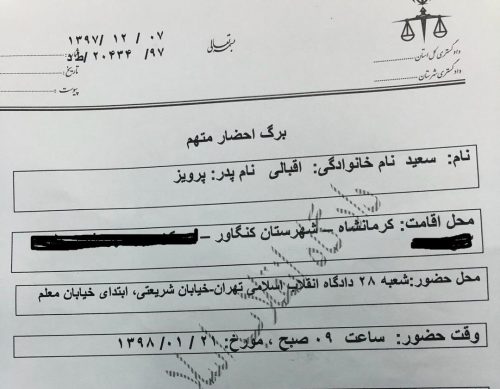 بسمه تعالی
دادگستری کل استان
دادگستری شهرستان
۱۳۹۷/ ۱۲ / ۰۷
۹۷/ ۲۰۴۳۴ /ط د
تاریخ:
پیوست:
برگ احضار متهم
نام: سعید نام خانوادگی: اقبالی نام پدر: پرویز
محل اقامت: کرمانشاه – شهرستان کنگاور –
محل حضور:شعبه ۲۸ دادگاه انقلاب اسلامی تهران-خیابان شریعتی، ابتدای خیابان معلم
وقت حضور: ساعت ۰۹ صبح ، مورخ: ۲۱ / ۰۱/ ۱۳۹۸